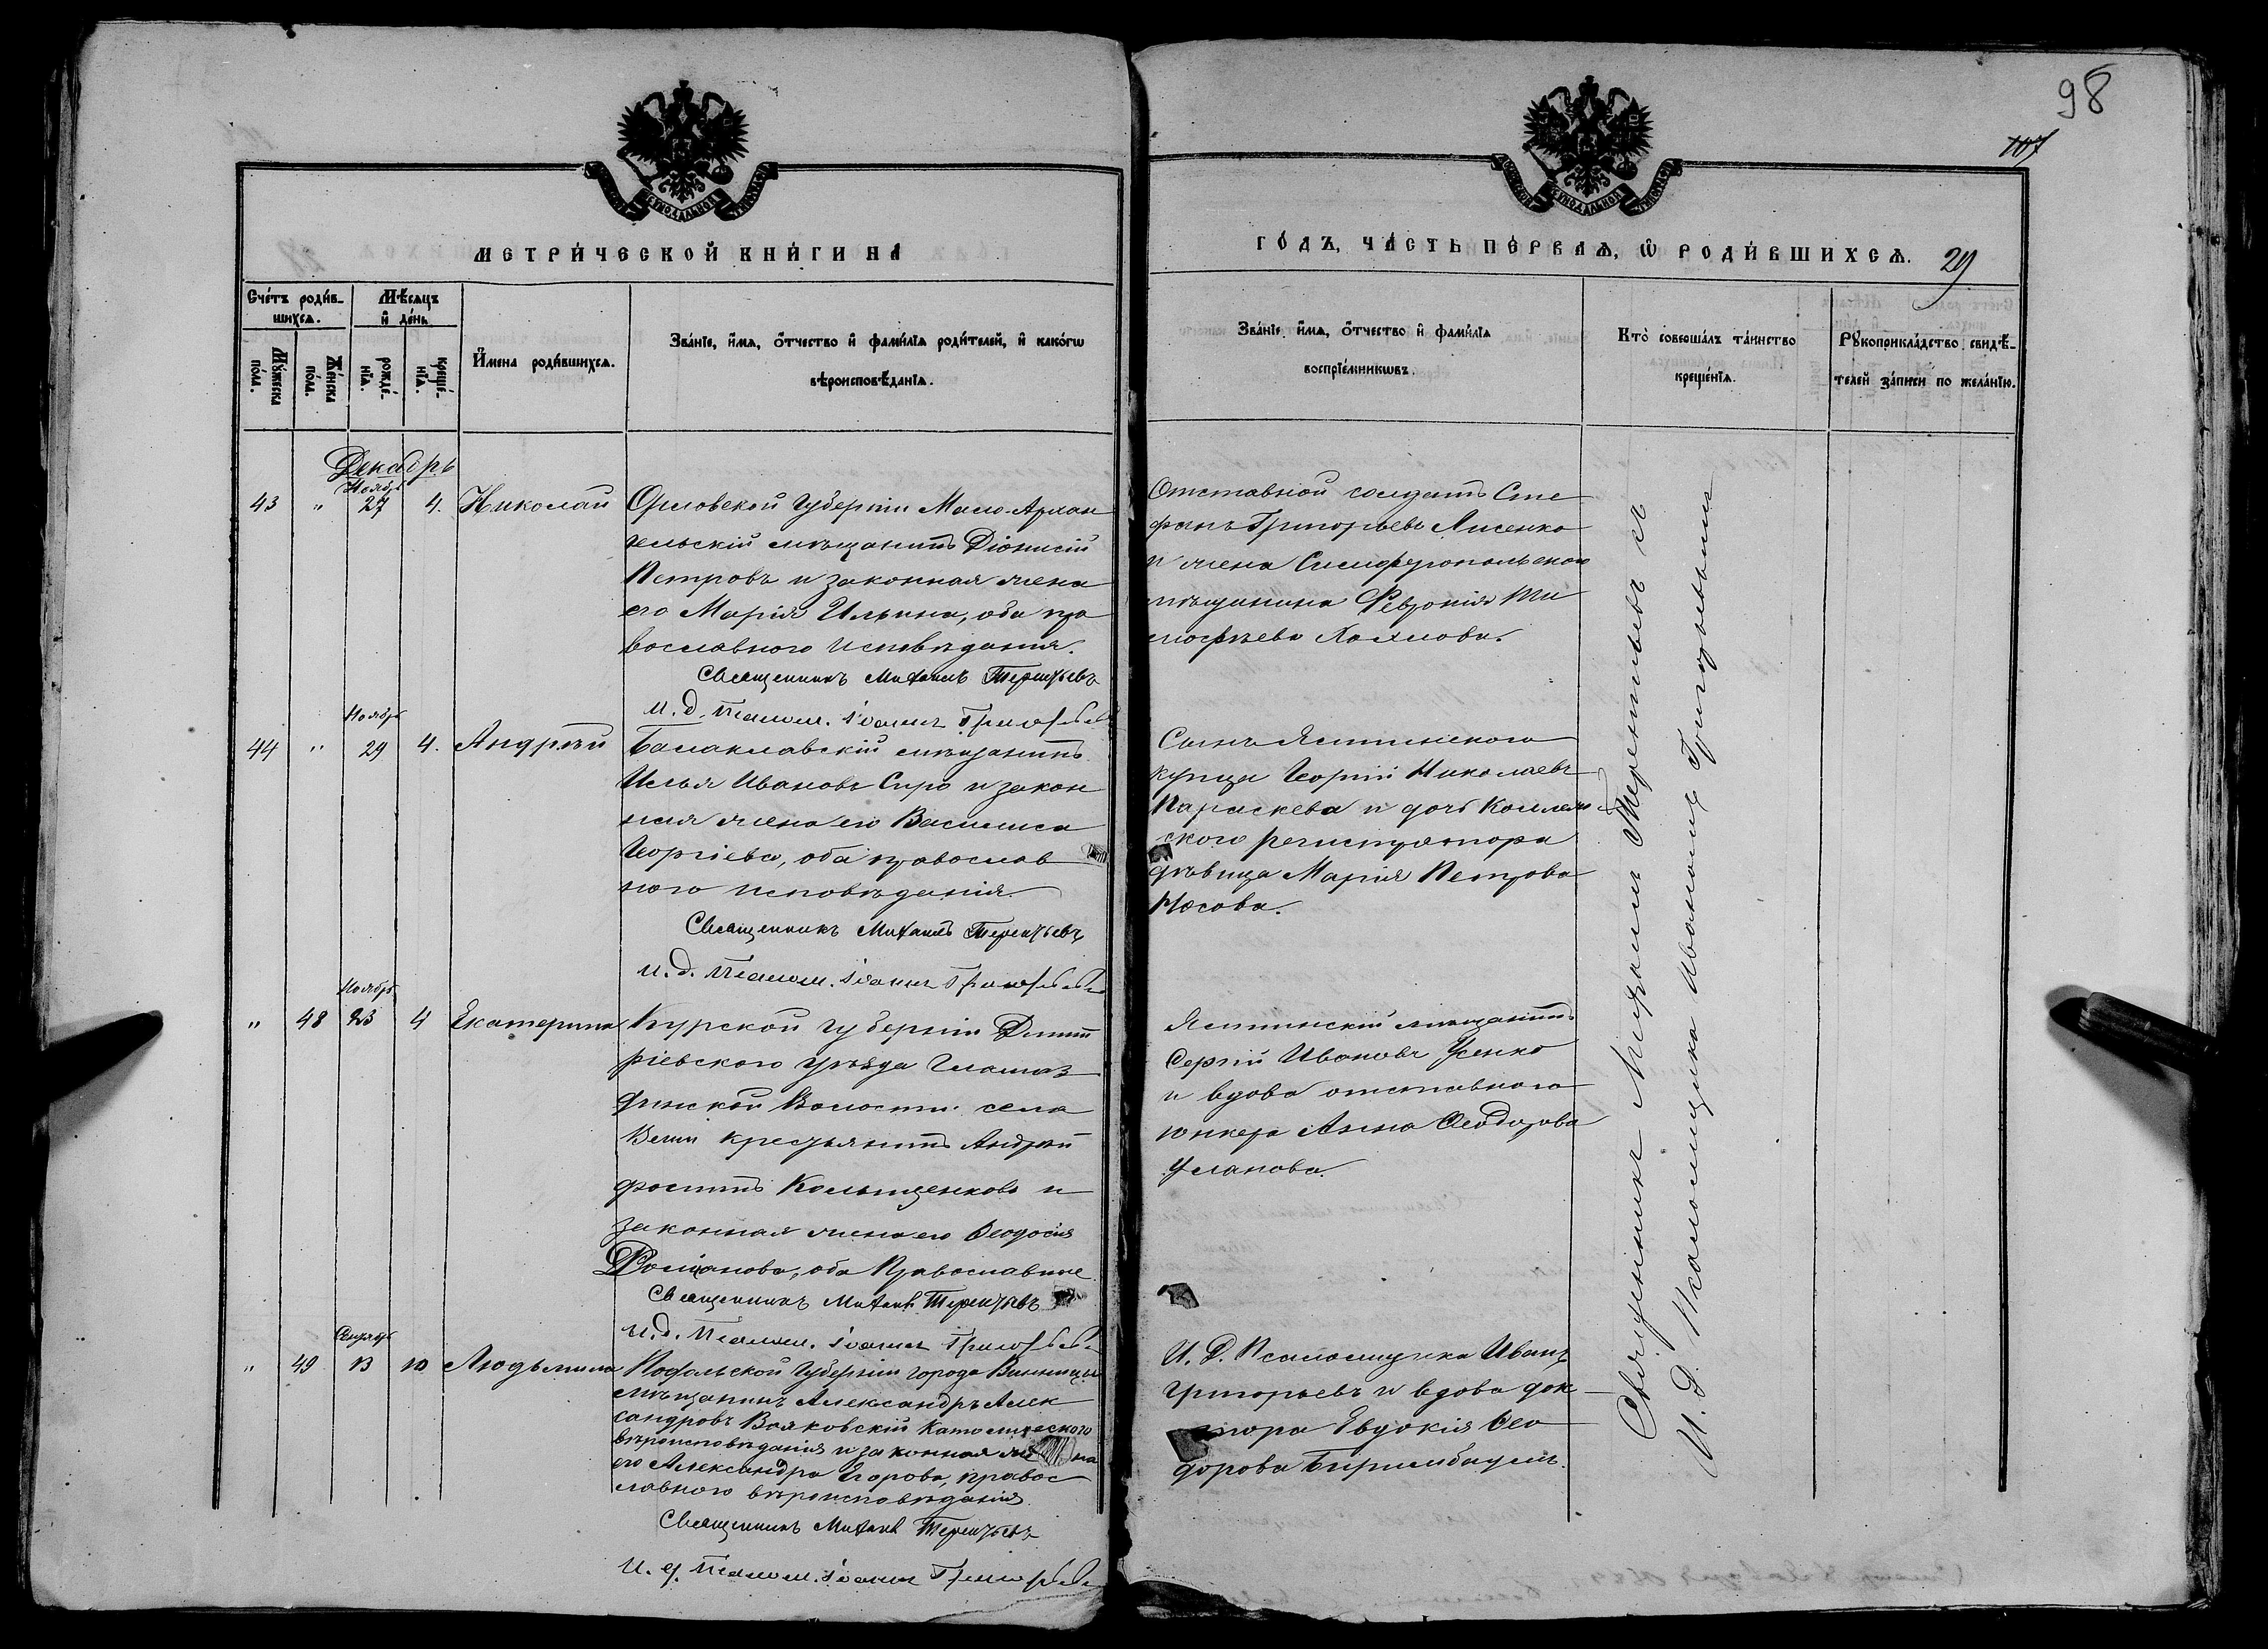 98
107
МЕТРИ́ЧЕСКОЙ КНИ́ГИ НА́
ГО́ДЪ, ЧА́СТЬ ПЕ́РВАѦ, Ѽ РОДИ́ВШИХСѦ. 29
Сче́тъ роди́в-
шихсѧ.
Мѣ́сѧцъ
и҆ де́нь
Мꙋ́жеска по́ла.
Же́нска по́ла.
рожде́-
нїѧ.
креще́-
нїѧ.
И҆мена роди́вшихсѧ.
Зва́нїе, и҆́мѧ, ѻ҆́тчество и҆ фами́лїѧ роди́телей, и҆ како́гѡ
вѣроисповѣ́данїѧ.
Зва́нїе, и҆́мѧ, ѻ҆́тчество и҆ фами́лїѧ
воспрїе́мникѡвъ.
Кто̀ соверша́лъ та́инство
креще́нїѧ.
Рꙋкоприкла́дство свидѣ́-
телей за́писи по жела́нїю.
Декабрь
Ноябрь
43 " 27 4. Николай
Орловской губерніи Мало-Архан
гельскій мѣщанинъ Діонисій
Петровъ и законная жена
его Марія Ильина, оба пра
вославного исповѣданія.
Священникъ Михаилъ Терентьевъ
И. д. Псалом. Іоаннъ Григорьевъ
Отставной солдатъ Сте
фанъ Григорьевъ Лисенко
и жена Симферопольского
мѣщанина Февронія Ти
мофѣева
Ноябрь
44 " 29 4. Андрей
Балаклавскій мѣщанинъ
Илья Ивановъ Сиро и закон
ная жена его Василиса
Георгіева, оба православ
ного исповѣданія.
Священникъ Михаилъ Терентьевъ
И. д. Псалом. Іоаннъ Григорьевъ
Сынъ Ялтинского
купца Георгій Николаевъ
Параскева и дочь Коллеж
ского регистратора
дѣвица Марія Петрова
Носова.
Ноябрь
" 48 23 4 Екатерина
Курской губерніи Дмит
ріевского уѣзда
Волости села
крестьянинъ Андрей
Кольщенковъ и
законная жена его Феодосія
Романова, оба Православные
Священникъ Михаилъ Терентьевъ
И. д. Псалом. Іоаннъ Григорьевъ
Ялтинскій мѣщанинъ
Сергій Ивановъ Усенко
и вдова отставного
юнкера Анна Феодорова
Уланова.
" 49 13 10 Людмила
Подольской губерніи города Винницы
мѣщанинъ Александръ Алек
сандровъ Вояковскій Католического
вѣроисповѣданія и законная жена
его Александра Егорова, правос
лавного вѣроисповѣданія
Священникъ Михаилъ Терентьевъ
И. д. Псалом. Іоаннъ Григорьевъ
И. Д. Псаломщика Иванъ
Григорьевъ и вдова док
тора Евдокія Фео
дорова Биримбаумъ.
Священникъ Михаилъ Терентьевъ и
И. Д. Псаломщика Иваномъ Григорьевымъ